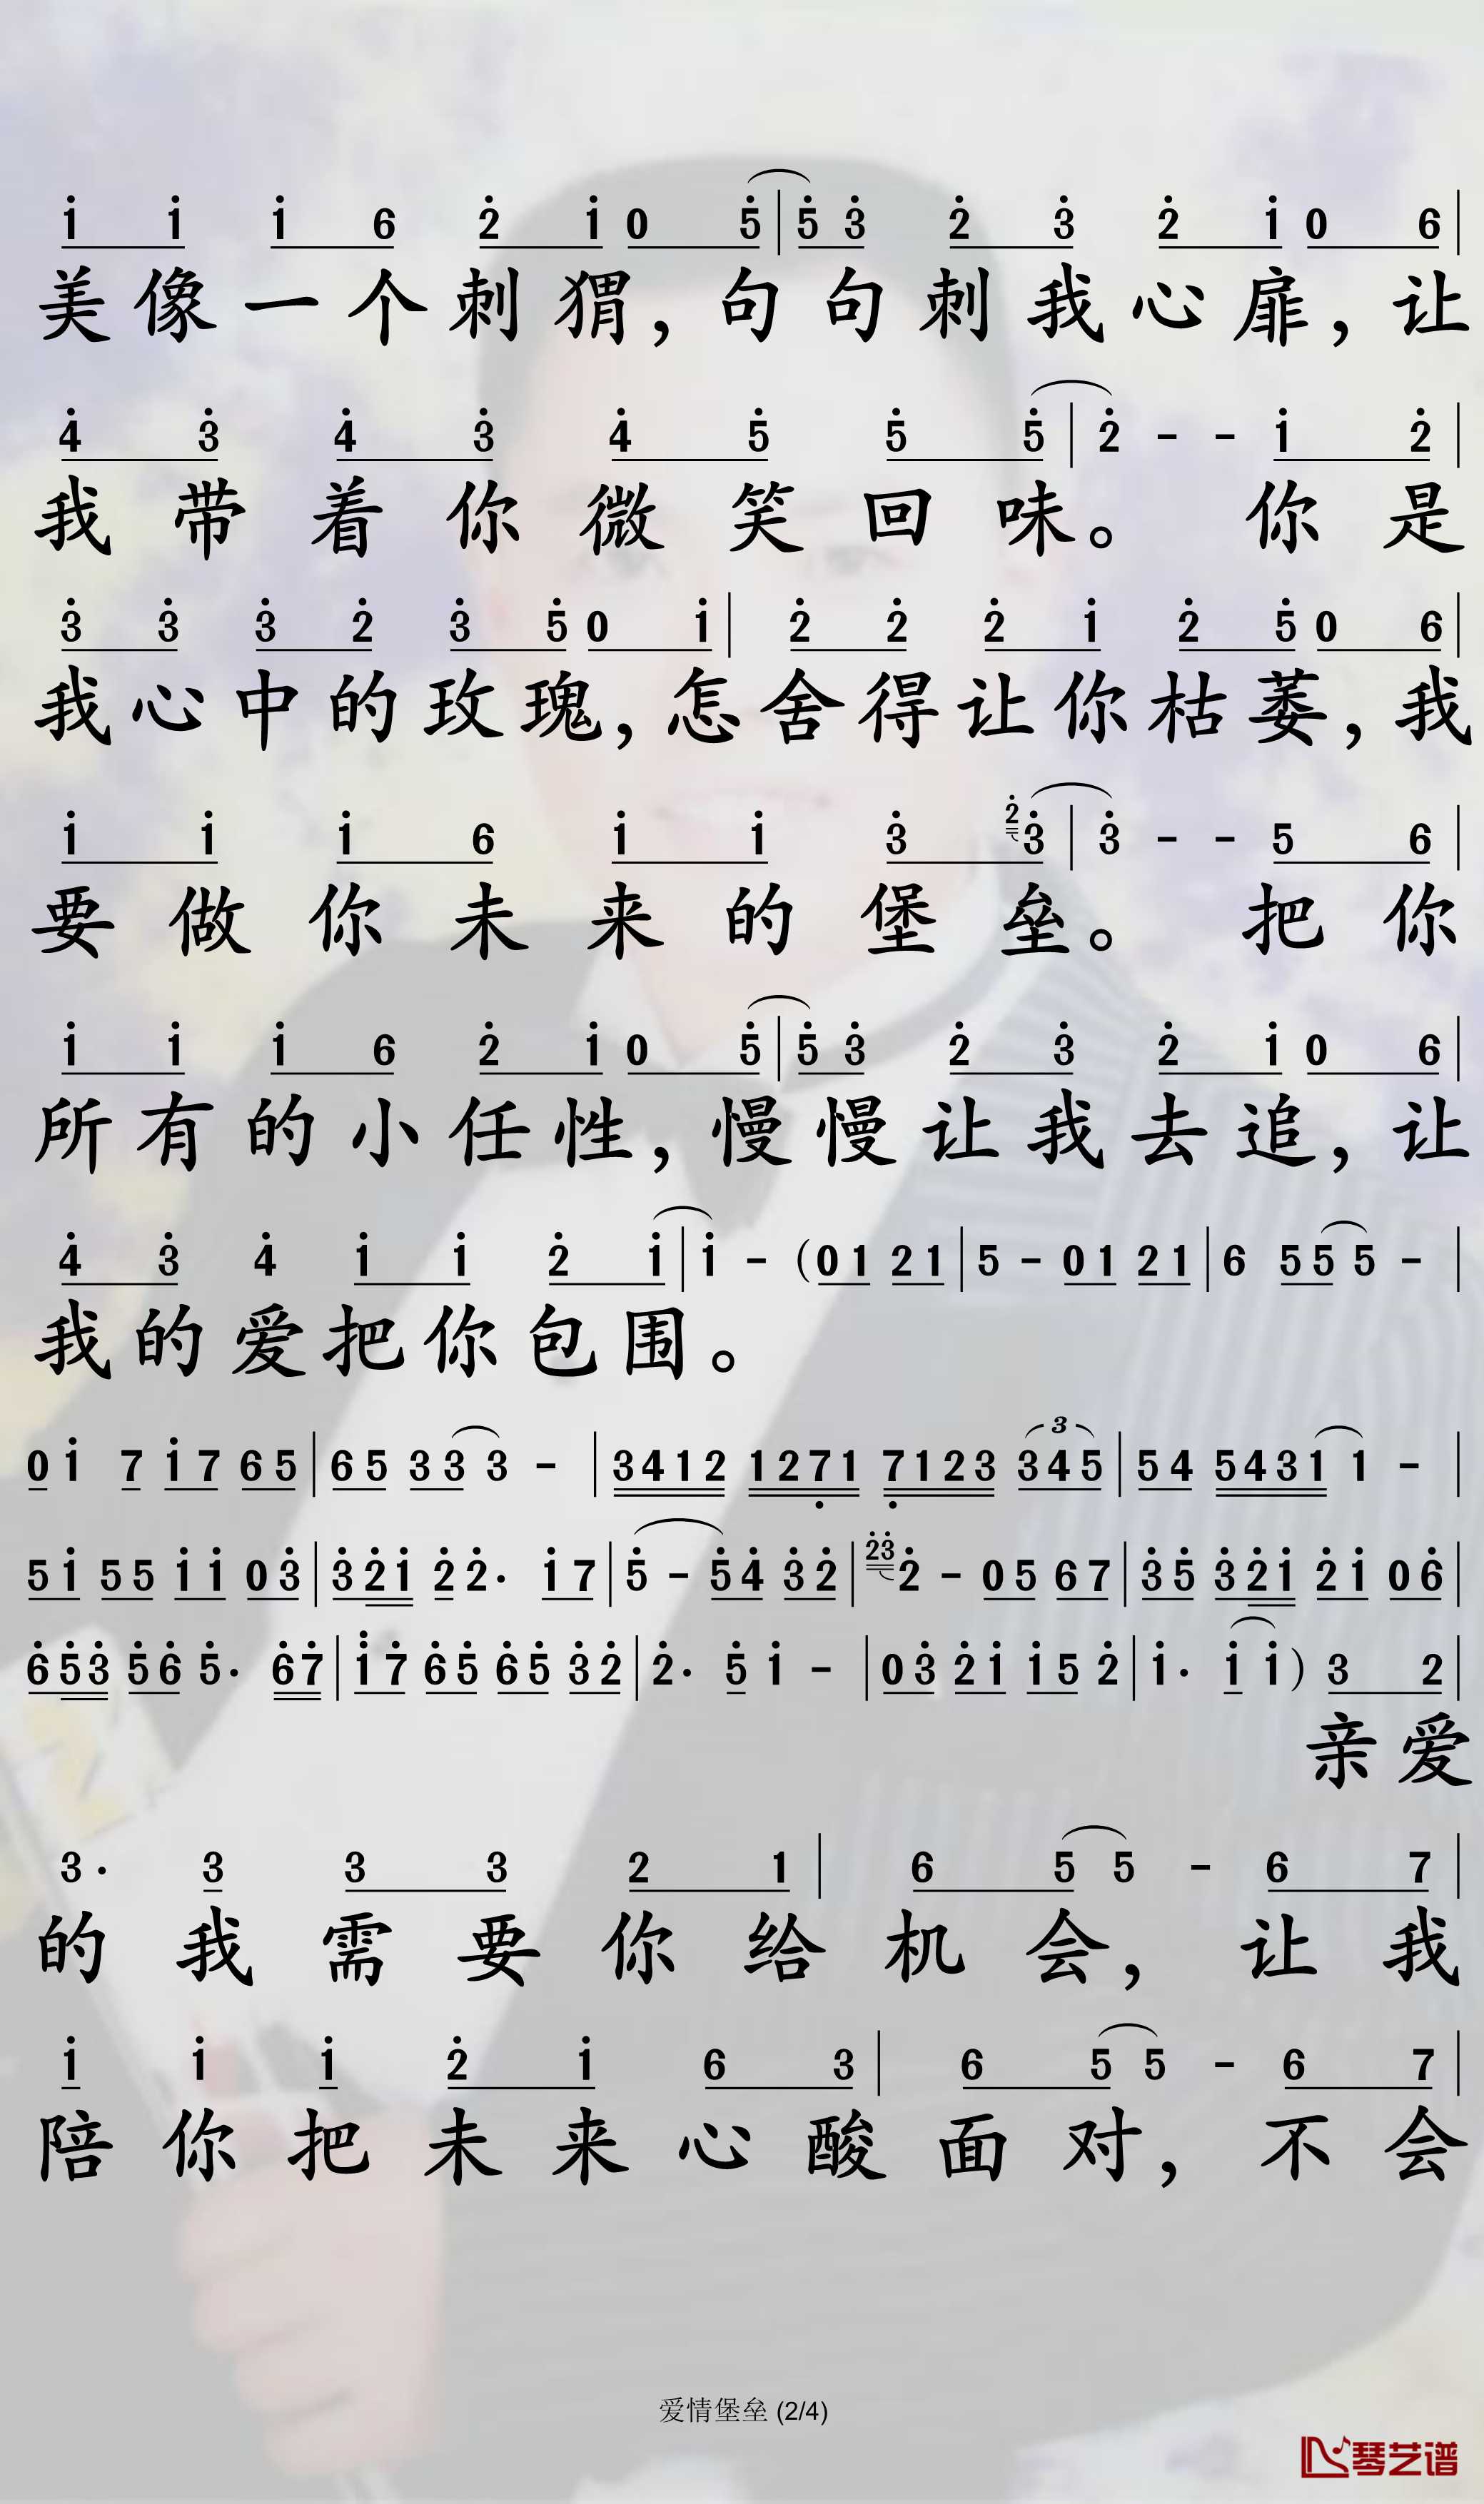 i̇ i̇ i̇ 6 2̇ i̇ 0 5̇ | 5̇ 3̇ 2̇ 3̇ 2̇ i̇ 0 6 |
美像一个刺猬，句句刺我心扉，让
4̇ 3̇ 4̇ 3̇ 4̇ 5̇ 5̇ 5̇ | 2̇ - - i̇ 2̇ |
我带着你微笑回味。你是
3̇ 3̇ 3̇ 2̇ 3̇ 5̇ 0 i̇ | 2̇ 2̇ 2̇ i̇ 2̇ 5̇ 0 6 |
我心中的玫瑰，怎舍得让你枯萎，我
i̇ i̇ i̇ 6 i̇ i̇ 3̇ 2̇ 3̇ | 3̇ - - 5 6 |
要做你未来的堡垒。把你
i̇ i̇ i̇ 6 2̇ i̇ 0 5̇ | 5̇ 3̇ 2̇ 3̇ 2̇ i̇ 0 6 |
所有的小任性，慢慢让我去追，让
4̇ 3̇ 4̇ i̇ i̇ 2̇ i̇ | i̇ - (0 1 2 1 | 5 - 0 1 2 1 | 6 5 5 5 - |
我的爱把你包围。
0 i̇ 7 i̇ 7 6 5 | 6 5 3 3 3 - | 3 4 1 2 1 2 7̣ 1 7̣ 1 2 3 3 4 5 3 | 5 4 5 4 3 1 1 - |
5 i̇ 5 5 i̇ i̇ 0 3̇ | 3̇ 2̇ i̇ 2̇ 2̇· i̇ 7 | 5̇ - 5̇ 4̇ 3̇ 2̇ | 2̇ 3̇ 2̇ - 0 5 6 7 | 3̇ 5̇ 3̇ 2̇ i̇ 2̇ i̇ 0 6̇ |
6̇ 5̇ 3̇ 5̇ 6̇ 5̇· 6̇ 7̇ | i̇̇ 7̇ 6̇ 5̇ 6̇ 5̇ 3̇ 2̇ | 2̇· 5̇ i̇ - | 0 3̇ 2̇ i̇ i̇ 5 2̇ | i̇· i̇ i̇ ) 3 2 |
亲爱
3· 3 3 3 2 1 | 6 5 5 - 6 7 |
的我需要你给机会，让我
i̇ i̇ i̇ 2̇ i̇ 6 3 | 6 5 5 - 6 7 |
陪你把未来心酸面对，不会
爱情堡垒 (2/4)
琴艺谱